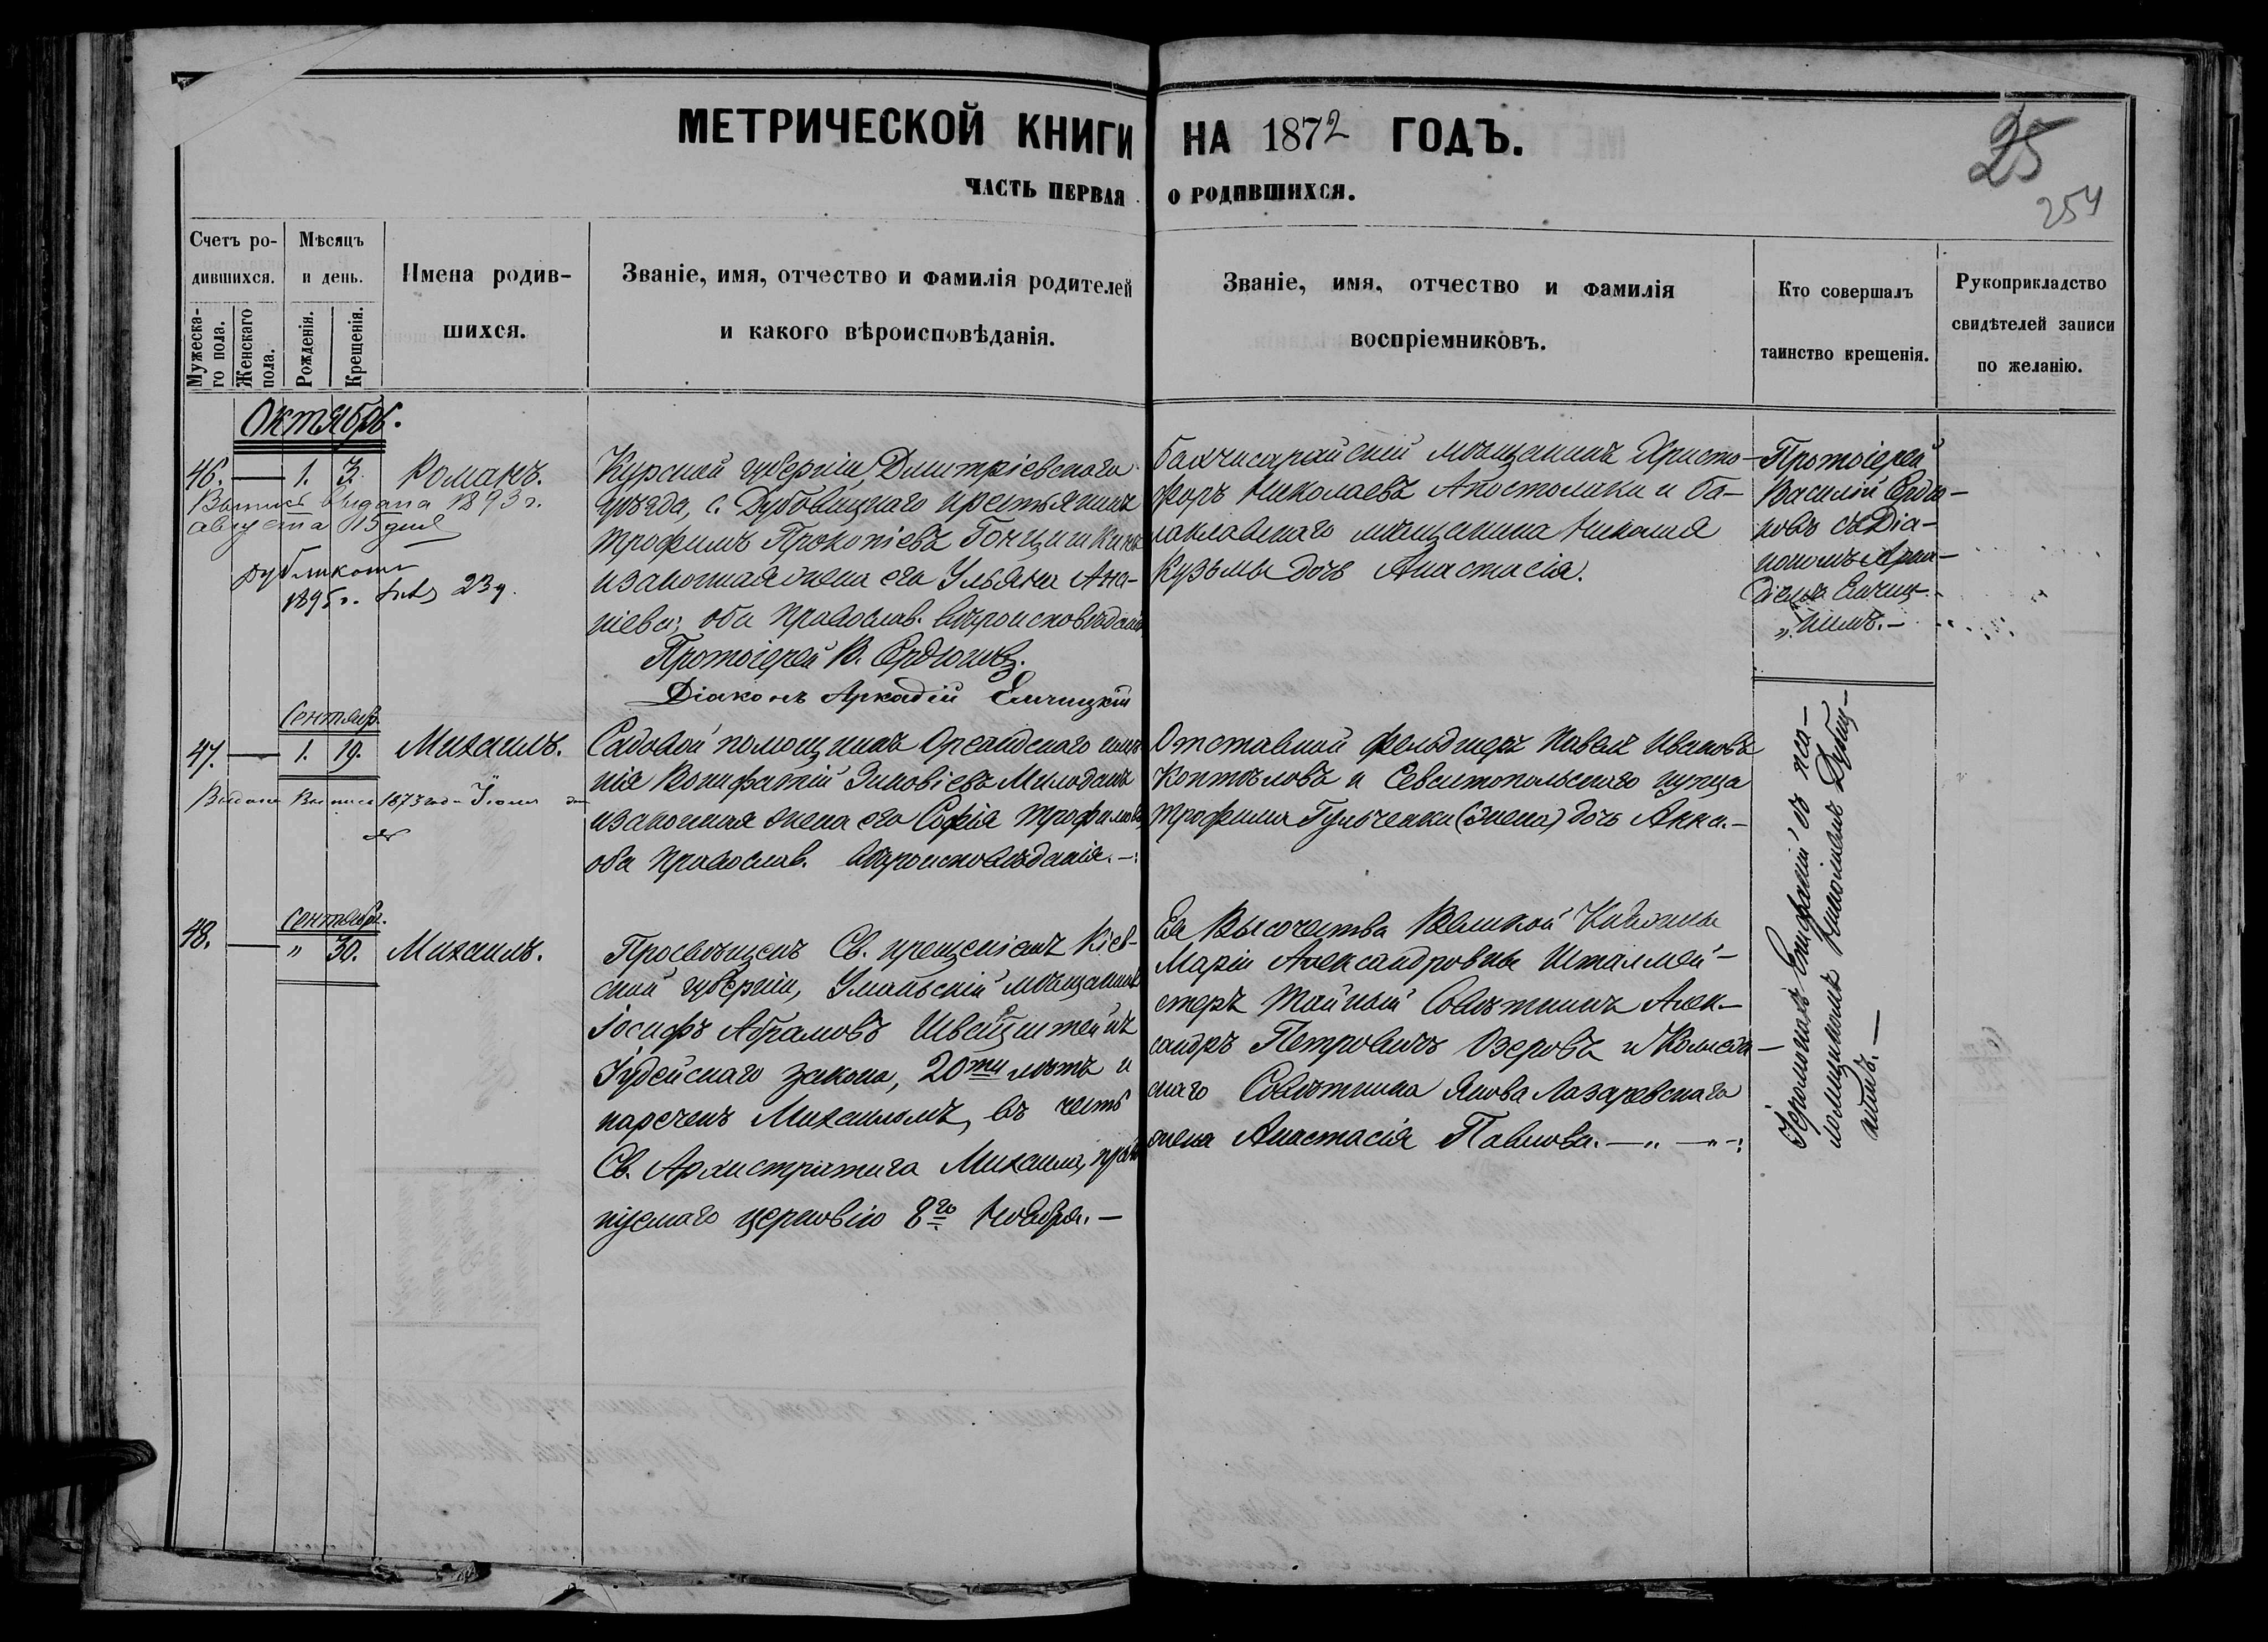 МЕТРИЧЕСКОЙ КНИГИ НА 1872 ГОДЪ.
ЧАСТЬ ПЕРВАЯ О РОДИВШИХСЯ.
25
254
Счетъ ро-
дившихся.
Мужеска-
го пола.
Женскаго
пола.
Мѣсяцъ
и день.
Рожденія.
Крещенія.
Имена родив-
шихся.
Званіе, имя, отчество и фамилія родителей
и какого вѣроисповѣданія.
Званіе, имя, отчество и фамилія
воспріемниковъ.
Кто совершалъ
таинство крещенія.
Рукоприкладство
свидѣтелей записи
по желанію.
Октябрь.
46. — 1. 3. Романъ.
Выпись выдана 1893 г.
августа 15 дня
дубликатъ
1895 г. 23 д.
Курской губерніи, Дмитріевскаго
уѣзда, с. Дубовицкаго крестьянинъ
Трофимъ Прокопіевъ
и законная жена его Ульяна Ана-
ніева, оба православ. вѣроисповѣданія
Протоіерей В.
Діаконъ Аркадій
Бахчисарайскій мѣщанинъ Христо-
форъ Николаевъ Апостолаки и Ба-
лаклавскаго мѣщанина Николая
Кузьмы дочь Анастасія.
Протоіерей
Василій
съ Діа-
кономъ Арка-
діемъ
Сентябр.
47. — 1. 19. Михаилъ.
Выдана выпись 1873 года Іюня
Садовой помощникъ Ореандскаго имѣ-
нія Вонифатій Зиновіевъ
и законная жена его Софія Трофимова
оба православ. вѣроисповѣданія.—:
Отставной фельдшеръ Павелъ Ивановъ
Коптѣловъ и Севастопольскаго купца
Трофима Гульченки (жена) дочь Анна.—
Сентябр.
48. — " 30. Михаилъ.
Просвѣщенъ Св. крещеніемъ Кіев-
ской губерніи, Уманьскій мѣщанинъ
Іосифъ Абрамовъ
Іудейскаго закона, 20ти лѣтъ и
нареченъ Михаиломъ, въ честь
Св. Архистратига Михаила, празд
нуемаго церковію 8го Ноября.—
Ея Высочества Великой Княжны
Маріи Александровны Шталмей-
стеръ Тайный Совѣтникъ Алек-
сандръ Петровичъ Озеровъ и Коллеж-
скаго Совѣтника Якова Лазаревскаго
жена Анастасія Павлова.—"—"—:
Іеромонахъ Епифаній съ пса-
ломщикомъ Николаемъ